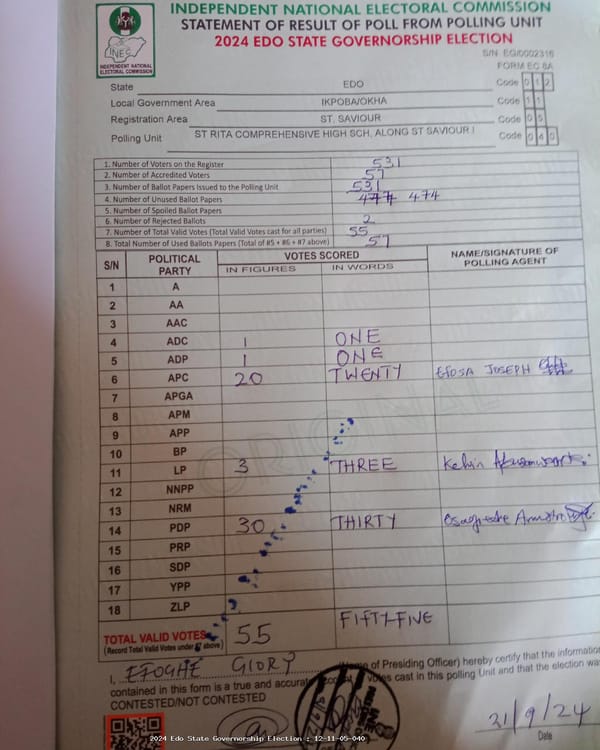 INDEPENDENT NATIONAL ELECTORAL COMMISSION
STATEMENT OF RESULT OF POLL FROM POLLING UNIT
2024 EDO STATE GOVERNORSHIP ELECTION
INEC
INDEPENDENT NATIONAL ELECTORAL COMMISSION
S/N EG/0002316
FORM EC 8A
State EDO Code 0 1 2
Local Government Area IKPOBA/OKHA Code 1 1
Registration Area ST. SAVIOUR Code 0 5
Polling Unit ST RITA COMPREHENSIVE HIGH SCH, ALONG ST SAVIOUR Code 0 4 0
1. Number of Voters on the Register 531
2. Number of Accredited Voters 57
3. Number of Ballot Papers Issued to the Polling Unit 531
4. Number of Unused Ballot Papers 474
5. Number of Spoiled Ballot Papers
6. Number of Rejected Ballots 2
7. Number of Total Valid Votes (Total Valid Votes cast for all parties) 55
8. Total Number of Used Ballots Papers (Total of #5 + #6 + #7 above) 57
S/N POLITICAL PARTY VOTES SCORED NAME/SIGNATURE OF POLLING AGENT
IN FIGURES IN WORDS
1 A
2 AA
3 AAC
4 ADC 1 ONE
5 ADP 1 ONE
6 APC 20 TWENTY EFOSA JOSEPH
7 APGA
8 APM
9 APP
10 BP
11 LP 3 THREE Kelvin
12 NNPP
13 NRM
14 PDP 30 THIRTY
15 PRP
16 SDP
17 YPP
18 ZLP
ORIGINAL
TOTAL VALID VOTES 55 FIFTY-FIVE
(Record Total Valid Votes under #7 above)
I, EFOGHE GLORY (Name of Presiding Officer) hereby certify that the information
contained in this form is a true and accurate account votes cast in this polling Unit and that the election was
CONTESTED/NOT CONTESTED
21/9/24
Date
2024 Edo State Governorship Election : 12-11-05-040